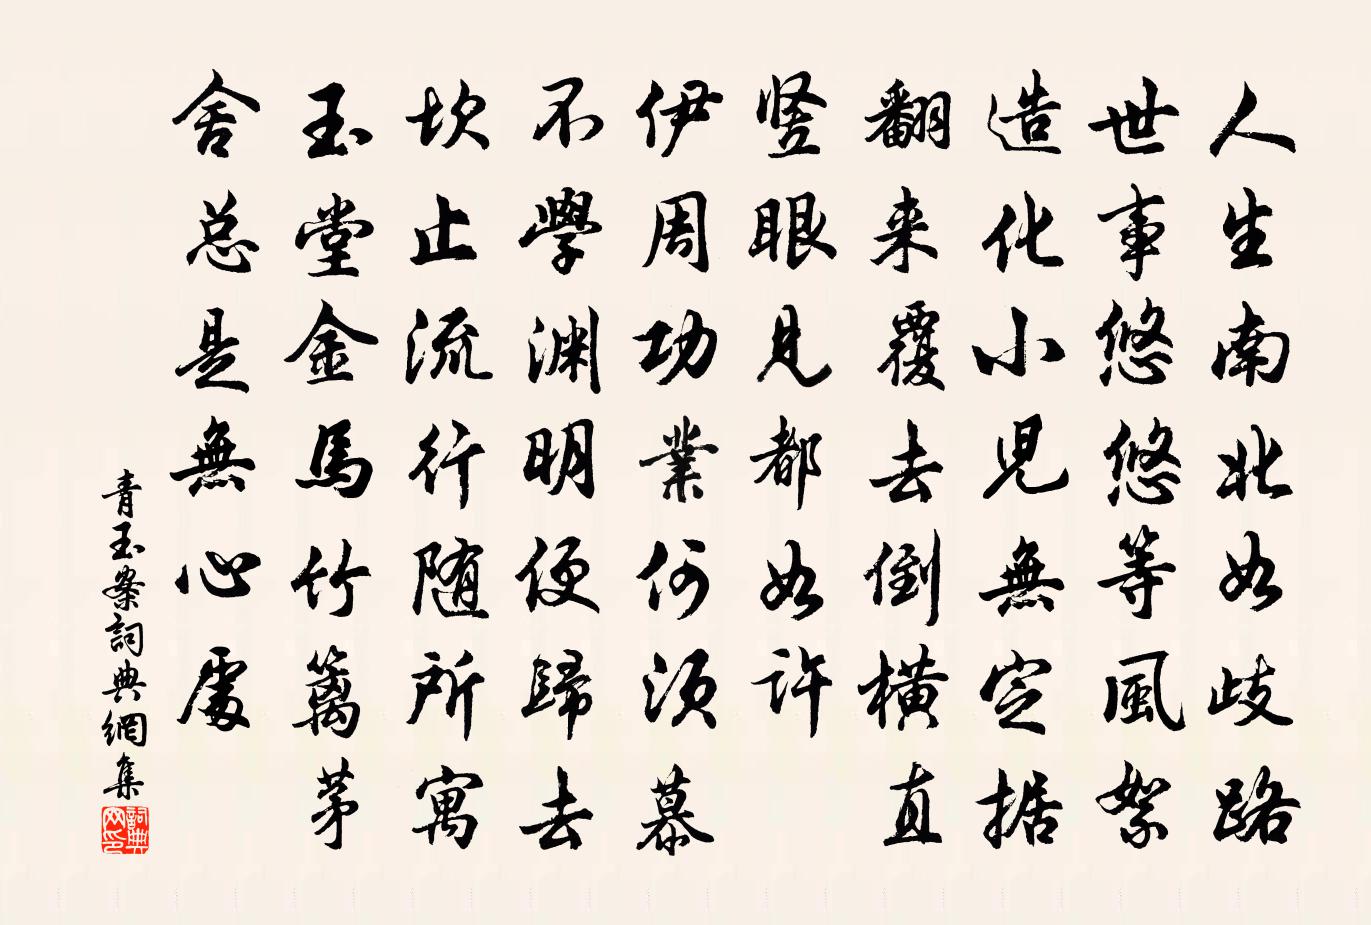 人生南北如歧路
世事悠悠等風絮
造化小児無定据
翻来覆去倒橫直
竖眼見都如许
伊周功業何须慕
不學渊明便歸去
坎止流行随所寓
玉堂金馬竹篱茅
舍总是無心處
青玉案詞典網集
詞典網印